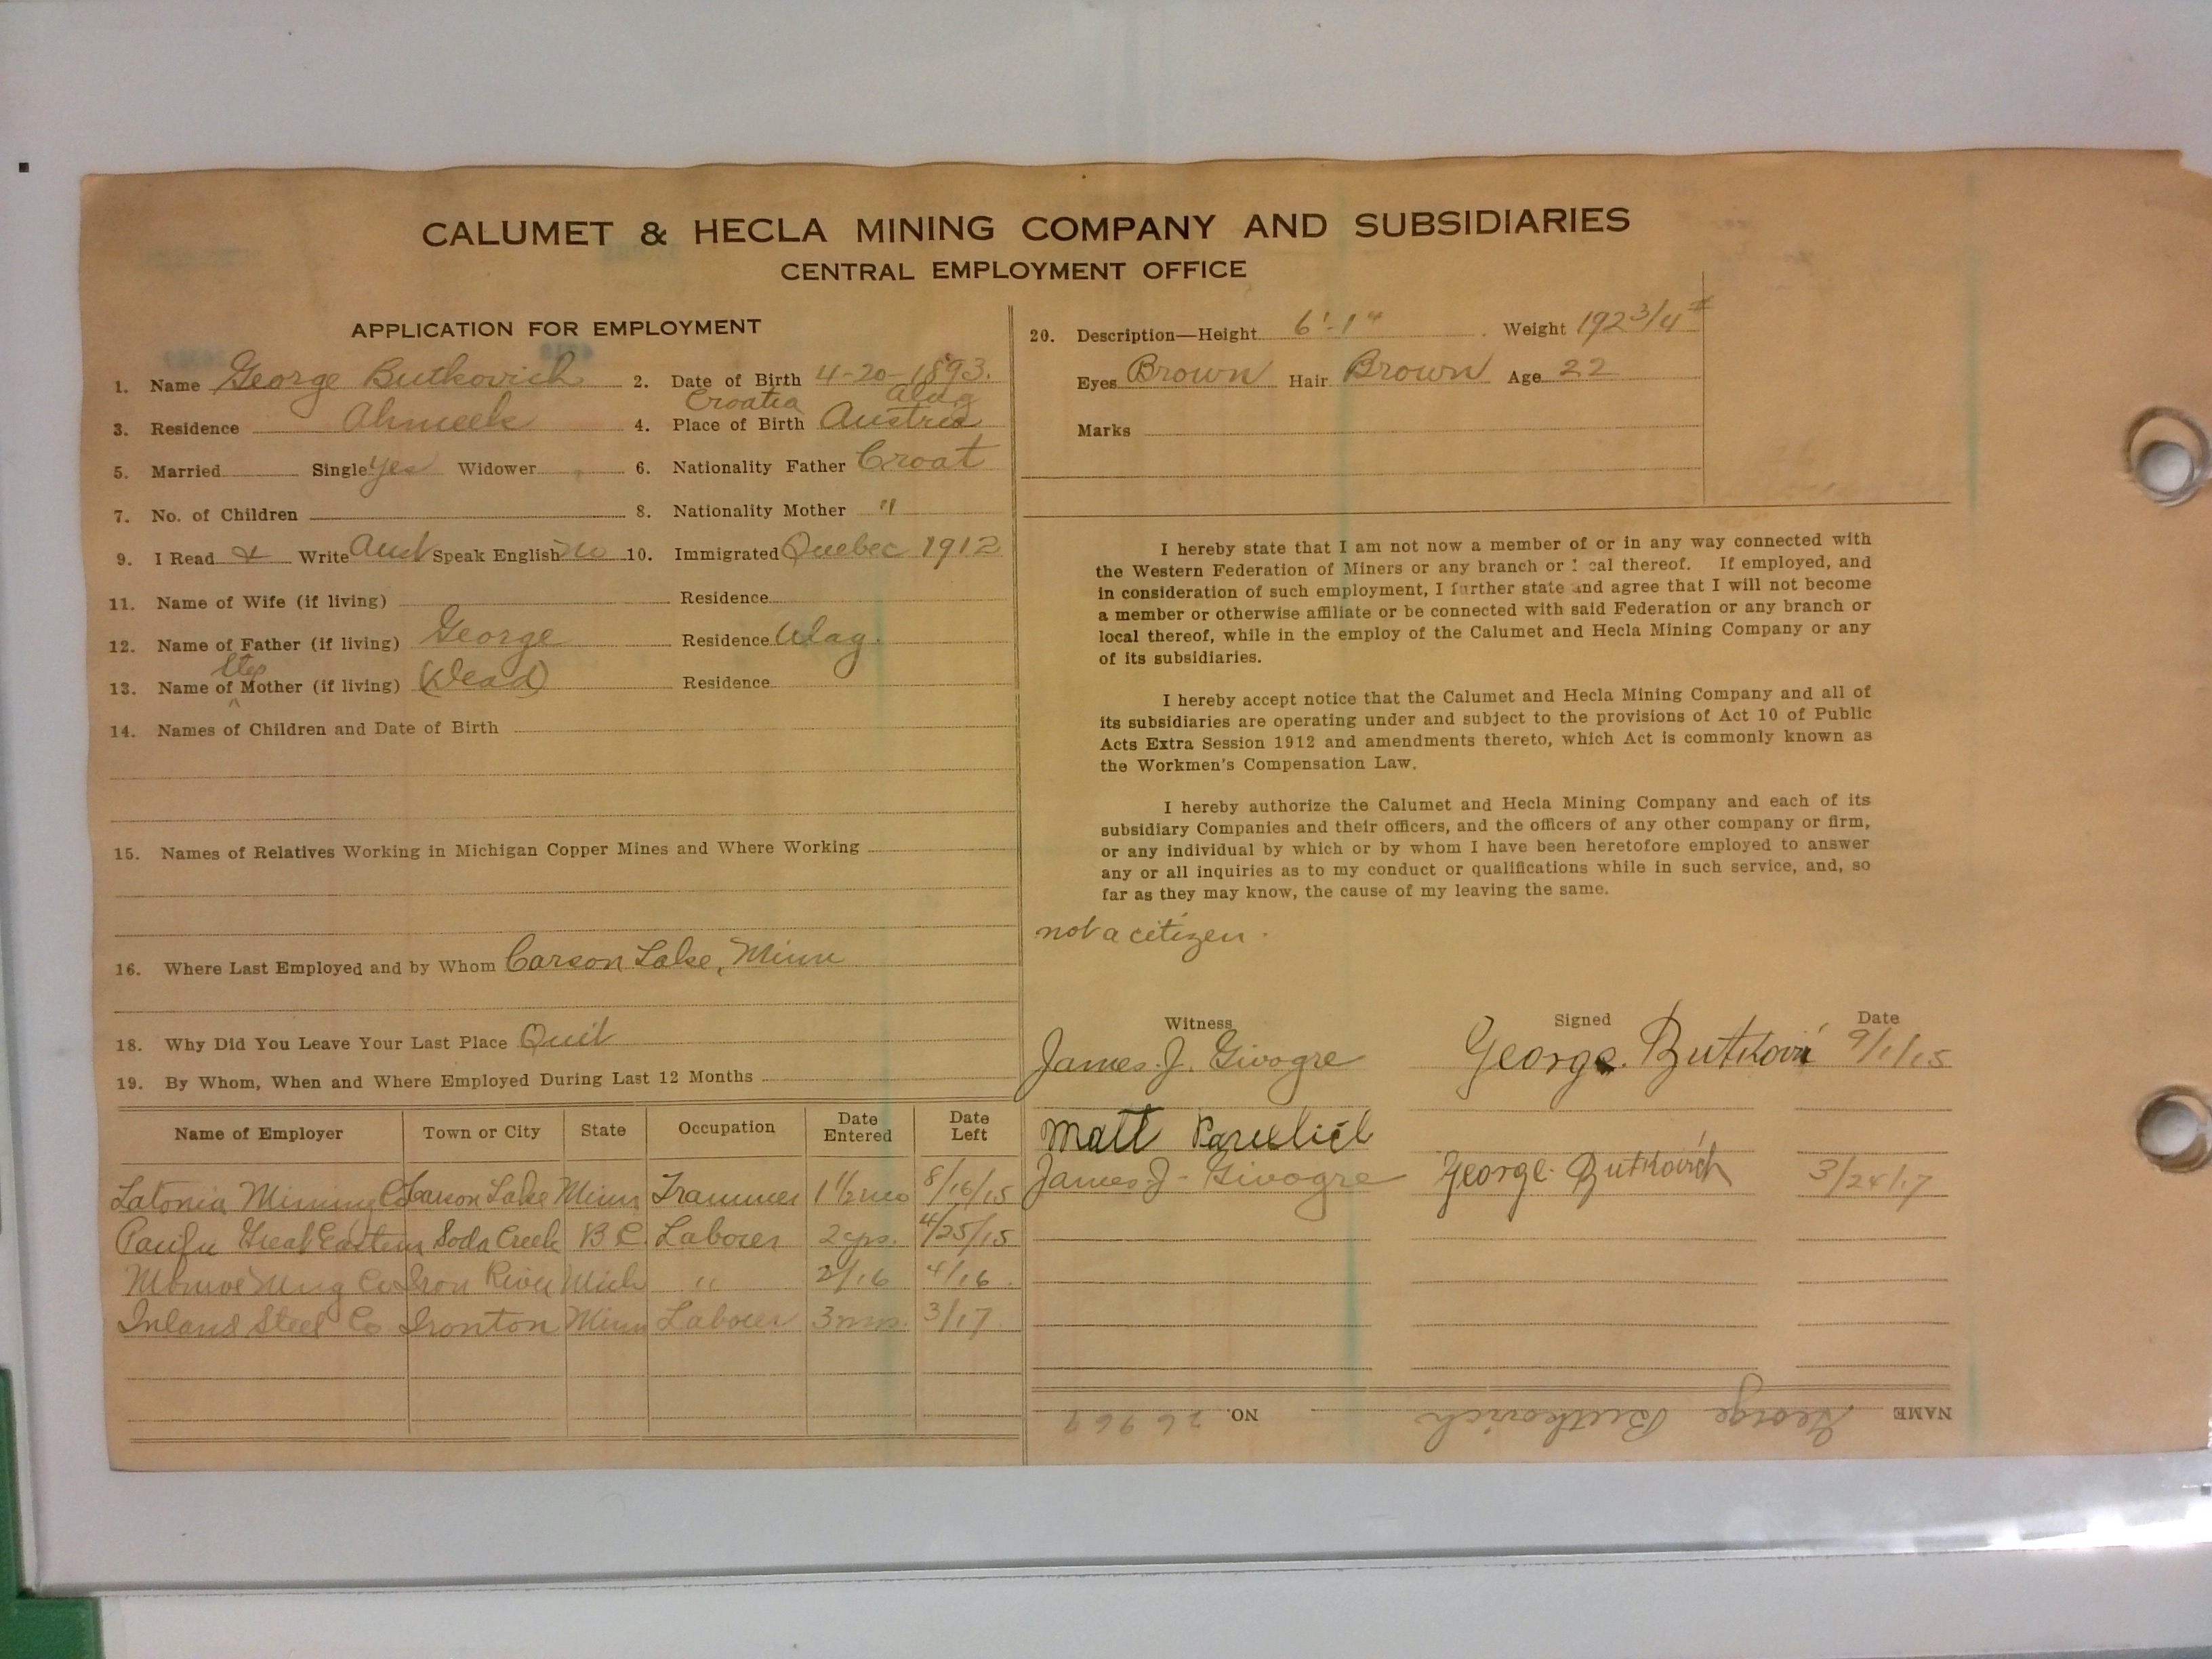 CALUMET & HECLA MINING COMPANY AND SUBSIDIARIES
CENTRAL EMPLOYMENT OFFICE
APPLICATION FOR EMPLOYMENT
1. Name George Butkovich 2. Date of Birth 4-20-1893.
Croatia
3. Residence Ahmeek 4. Place of Birth Austria
5. Married Single yes Widower 6. Nationality Father Croat
7. No. of Children 8. Nationality Mother "
9. I Read & Write Aust Speak English no 10. Immigrated Quebec 1912
11. Name of Wife (if living) Residence
12. Name of Father (if living) George Residence
Step
13. Name of ^ Mother (if living) (Dead) Residence
14. Names of Children and Date of Birth
15. Names of Relatives Working in Michigan Copper Mines and Where Working
16. Where Last Employed and by Whom Carson Lake, Minn
18. Why Did You Leave Your Last Place Quit
19. By Whom, When and Where Employed During Last 12 Months
Name of Employer Town or City State Occupation Date Entered Date Left
Latonia Mining Co Carson Lake Minn Trammer 1 1/2 mo 8/16/15
Pacific Great Eastern Soda Creek B C. Laborer 2 yrs. 4/25/15
Monroe Mng Co Iron River Mich " 2/16 4/16.
Inland Steel Co Ironton Minn Laborer 3 mos. 3/17.
20. Description—Height 6'-1" Weight 192 3/4 #
Eyes Brown Hair Brown Age 22
Marks
I hereby state that I am not now a member of or in any way connected with
the Western Federation of Miners or any branch or local thereof. If employed, and
in consideration of such employment, I further state and agree that I will not become
a member or otherwise affiliate or be connected with said Federation or any branch or
local thereof, while in the employ of the Calumet and Hecla Mining Company or any
of its subsidiaries.
I hereby accept notice that the Calumet and Hecla Mining Company and all of
its subsidiaries are operating under and subject to the provisions of Act 10 of Public
Acts Extra Session 1912 and amendments thereto, which Act is commonly known as
the Workmen's Compensation Law.
I hereby authorize the Calumet and Hecla Mining Company and each of its
subsidiary Companies and their officers, and the officers of any other company or firm,
or any individual by which or by whom I have been heretofore employed to answer
any or all inquiries as to my conduct or qualifications while in such service, and, so
far as they may know, the cause of my leaving the same.
not a citizen.
Witness Signed Date
James. J. Givogre George. Butkovi 9/1/15
Matt
James J- Givogre George. Butkovich 3/24/17
NAME George Butkovich NO. 26969